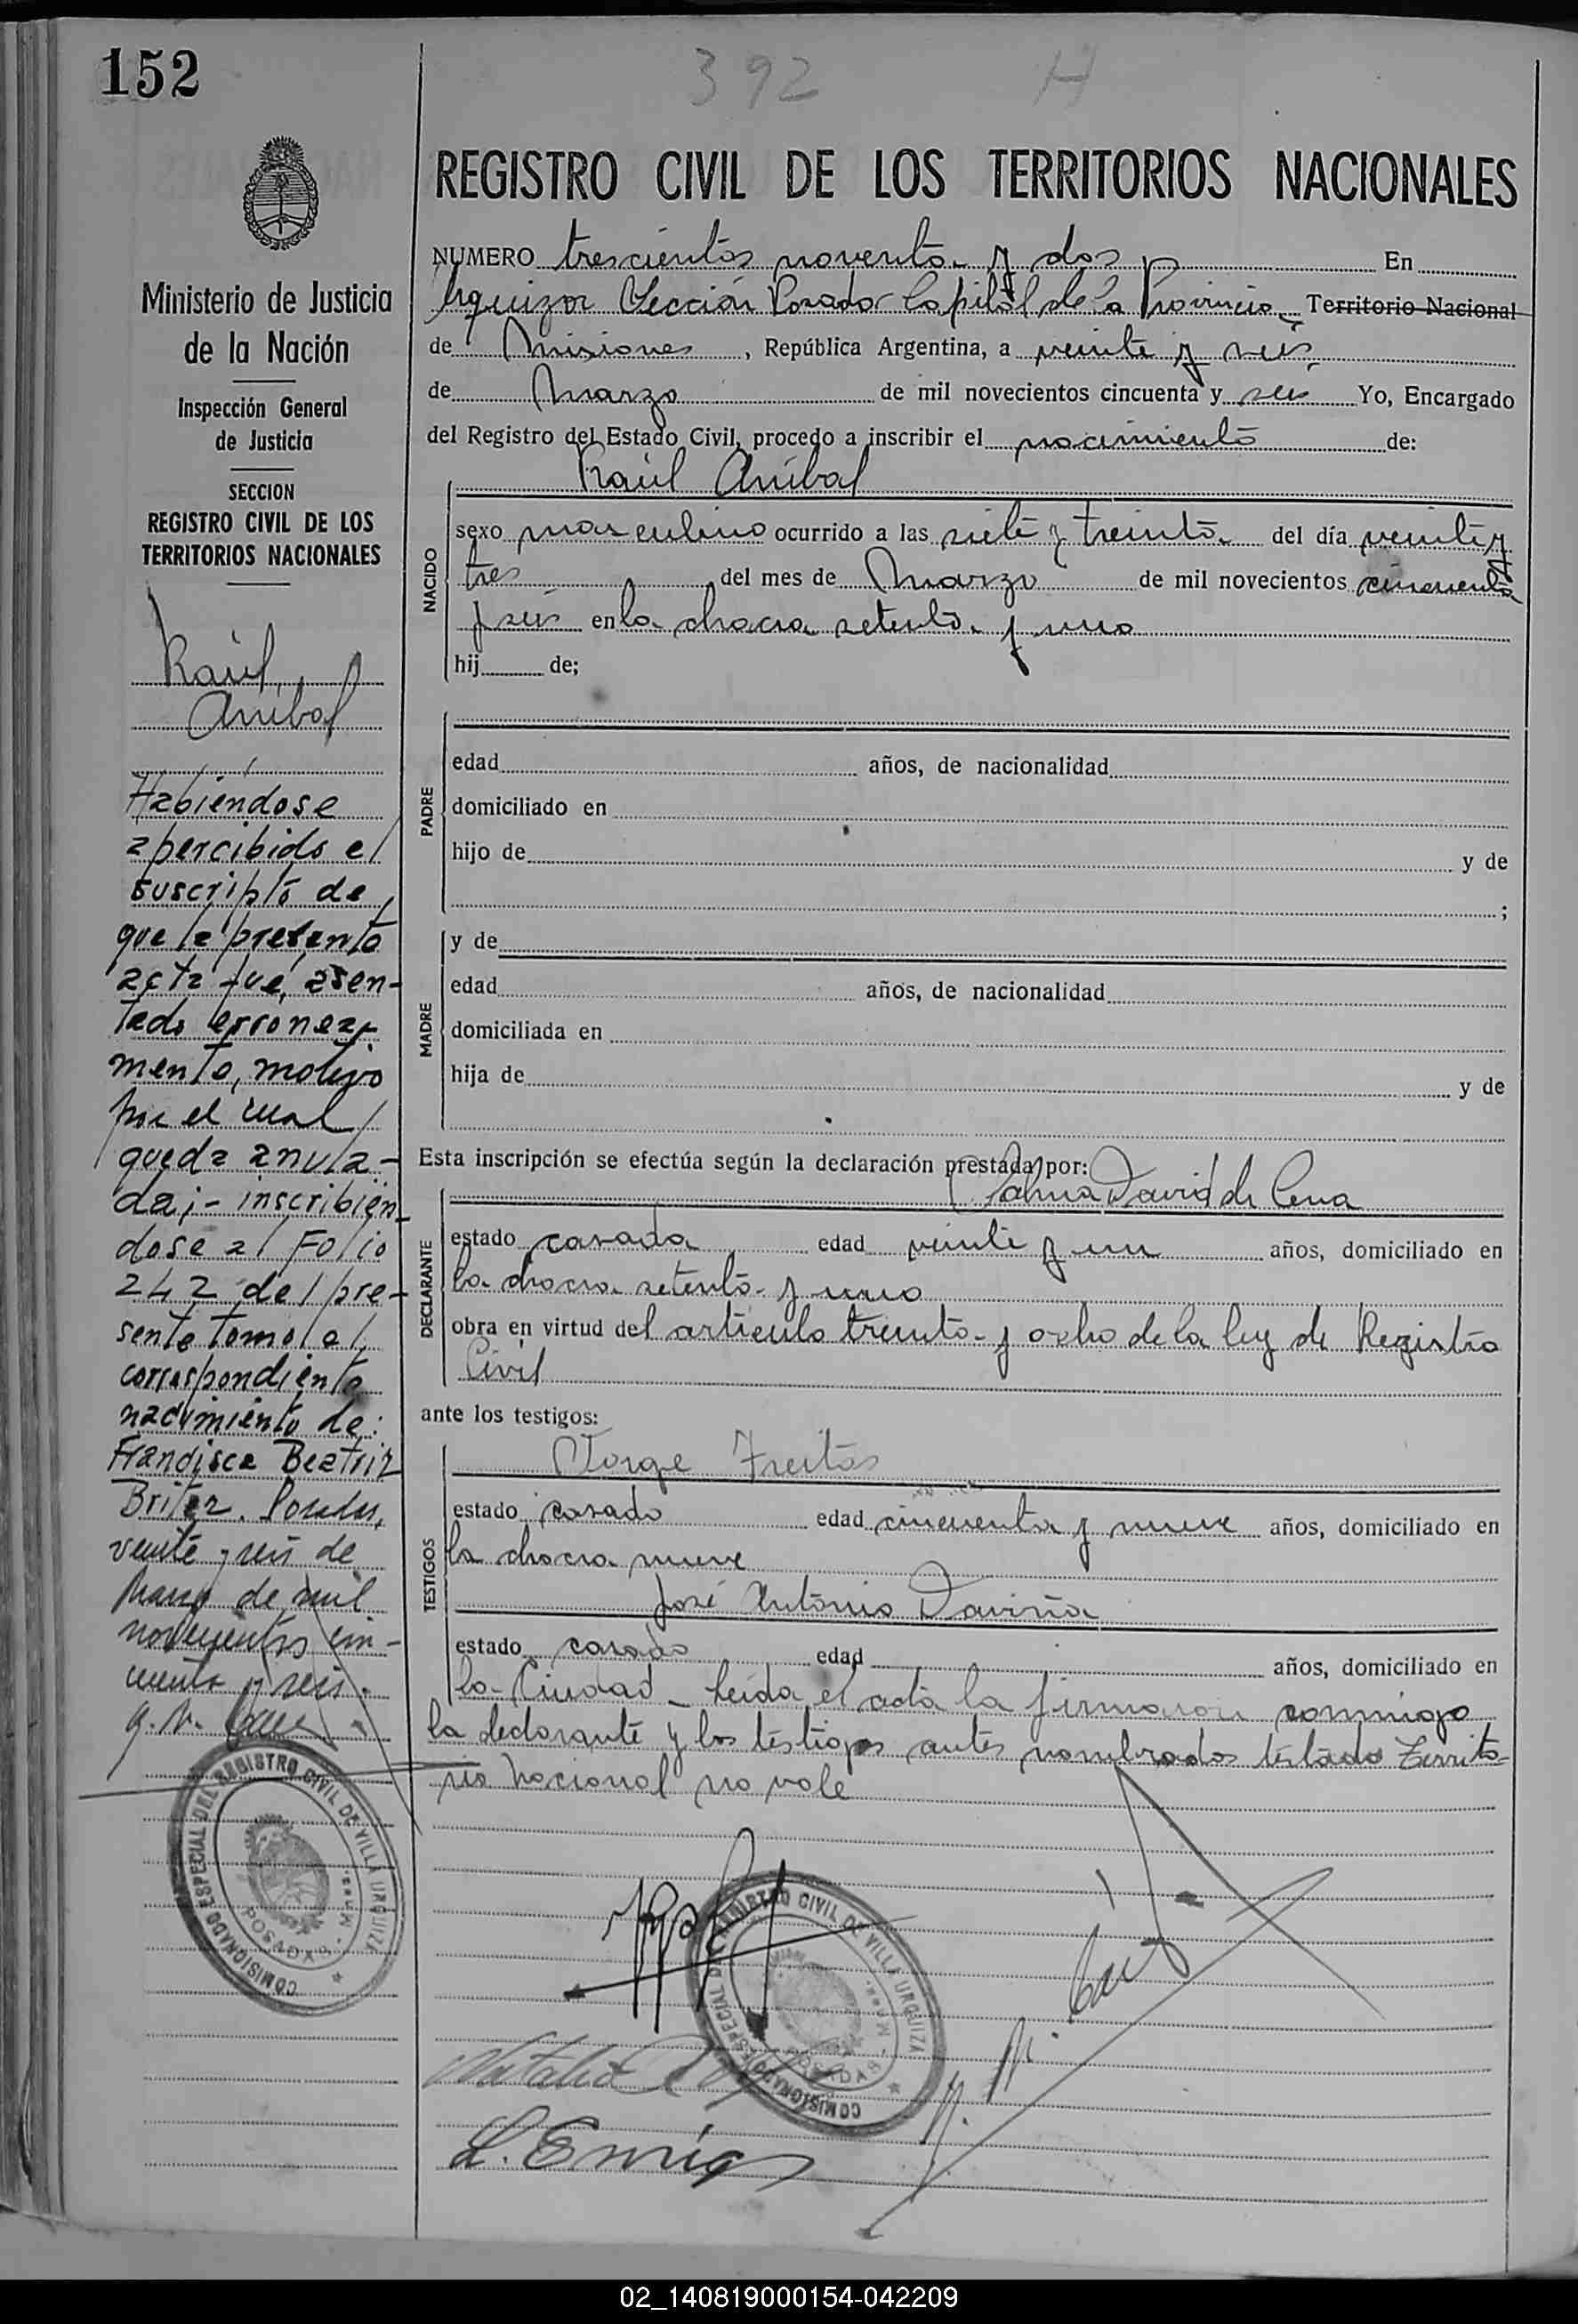 152
392 H
REGISTRO CIVIL DE LOS TERRITORIOS NACIONALES
Ministerio de Justicia
de la Nación
Inspección General
de Justicia
SECCION
REGISTRO CIVIL DE LOS
TERRITORIOS NACIONALES
Raúl
Aníbal
Habiéndose
apercibido el
suscripto de
que la presente
acta fue asen-
tada erronea-
mente, motivo
por el cual
queda anula-
da;- inscribien-
dose al Folio
242 del pre-
sente tomo el
correspondiente
nacimiento de:
Francisca Beatriz
Britez. Posadas,
veinte y seis de
Marzo de mil
novecientos cin-
cuenta y seis.
NUMERO trescientos noventa y dos En
Urquiza Sección Posadas Capital de la Provincia Territorio Nacional
de Misiones, República Argentina, a veinte y seis
de Marzo de mil novecientos cincuenta y seis Yo, Encargado
del Registro del Estado Civil, procedo a inscribir el nacimiento de:
Raúl Aníbal
NACIDO
sexo masculino ocurrido a las siete y treinta del día veinte y
tres del mes de Marzo de mil novecientos cincuenta
y seis en la chacra setenta y uno
hij de;
PADRE
edad años, de nacionalidad
domiciliado en
hijo de y de
;
MADRE
y de
edad años, de nacionalidad
domiciliada en
hija de y de
Esta inscripción se efectúa según la declaración prestada por:
David de
DECLARANTE
estado casada edad veinte y un años, domiciliado en
la chacra setenta y uno
obra en virtud del articulo treinta y ocho de la ley de Registro
Civil
ante los testigos:
TESTIGOS
Jorge Freitas
estado casado edad cincuenta y nueve años, domiciliado en
la chacra nueve
José Antonio Daviña
estado casado edad años, domiciliado en
la Ciudad - Leída el acta la firmaron conmigo
la declarante y los testigos antes nombrados testado Territo-
rio Nacional no vale
COMISIONADO ESPECIAL DEL REGISTRO CIVIL DE VILLA URQUIZA
POSADAS - Mnes.
COMISIONADO ESPECIAL DEL REGISTRO CIVIL DE VILLA URQUIZA
POSADAS - Mnes.
02_140819000154-042209